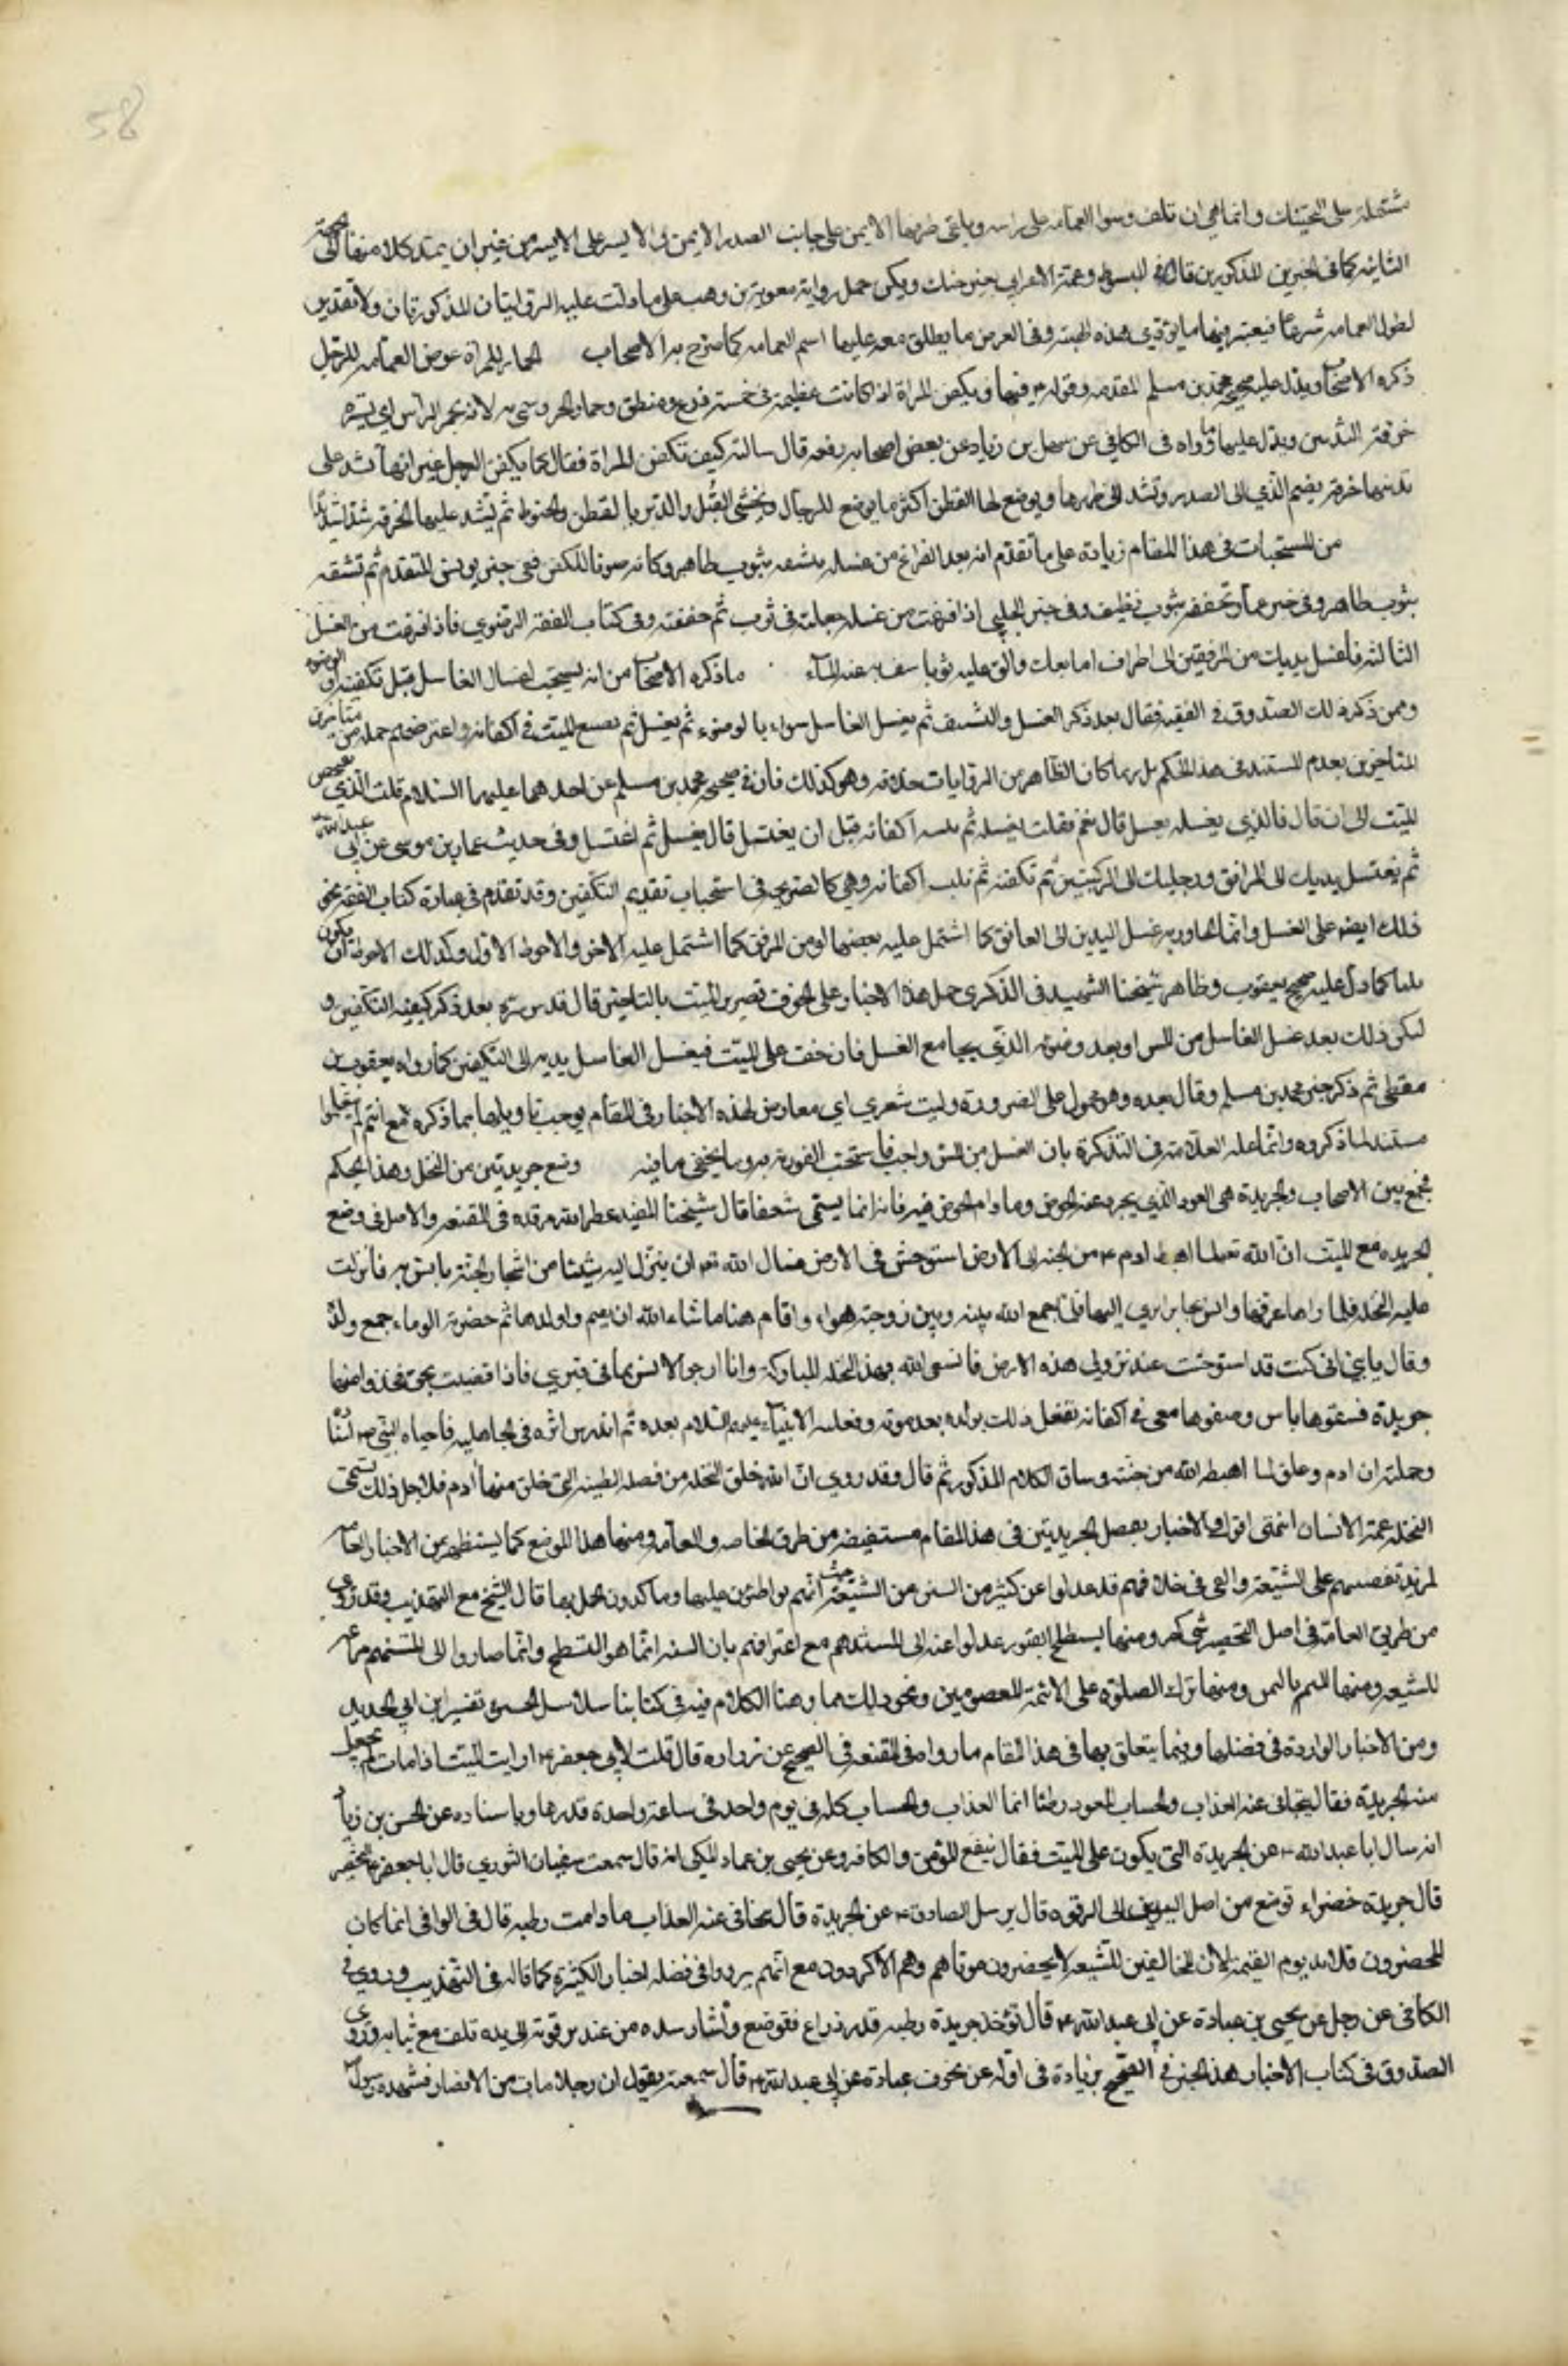 58
مشتملة على التحنيك وانما هي ان تلف وسط العمامة على راسه ويلقى طرفها الايمن على جانب الصدر الايمن والايسر على الايسر من غير ان يمتد كلا منهما الى الجهة
الثانية كما في الخبرين المذكورين قال في المبسوط وعمة الاعرابي بغير حنك ويمكن حمل رواية معوية بن وهب على ما دلت عليه الروايتان المذكورتان ولا تقدير
لطول العمامة شرعا فيعتبر فيها ما يؤدي هذه الهيئة وفي العرض ما يطلق معه عليها اسم العمامة كما صرح به الاصحاب الخمار للمرأة عوض العمامة للرجل
ذكره الاصحاب ويدل عليه صحيح محمد بن مسلم المقدمة وقوله فيها ويكفن المراة اذا كانت عظيمة في خمسة درع ومنطق وخمار الخ وسمي به لانه يخمر الراس اي يستره
خرقة الثديين ويدل عليها ما رواه في الكافي عن سهل بن زياد عن بعض اصحابه رفعه قال سالته كيف تكفن المراة فقال كما يكفن الرجل غير انها تشد على
ثديها خرقة يضم الثدي الى الصدر وتشد الى ظهرها ويوضع لها القطن اكثر ما يوضع للرجال ويحشى القبل والدبر بالقطن والحنوط ثم تشد عليها الخرقة شدا شديدا
من المستحبات في هذا المقام زيادة على ما تقدم انه بعد الفراغ من غسله ينشفه بثوب طاهر وكانه صونا للكفن ففي خبر يونس المتقدم ثم تنشفه
بثوب طاهر وفي خبر عمار وتجففه بثوب نظيف وفي خبر الحلبي اذا فرغت من غسله جعلته في ثوب ثم جففته وفي كتاب الفقه الرضوي فاذا فرغت من الغسل
الثالثة فاغسل يديك من المرفقين الى اطراف اصابعك والق عليه ثوبا ينشف به عنه الماء ما ذكره الاصحاب من انه يستحب اغتسال الغاسل قبل تكفينه او الوضوء
وممن ذكر ذلك الصدوق في الفقيه فقال بعد ذكر الغسل والتنشيف ثم يغسل الغاسل سواء بالوضوء ثم يغسل ثم يضع الميت في اكفانه واعترضهم جملة من متاخري
المتاخرين بعدم المستند في هذا الحكم بل ربما كان الظاهر من الروايات خلافه وهو كذلك فان في صحيح محمد بن مسلم عن احدهما عليهما السلام قلت الذي يغمض
الميت الى ان قال فالذي يغسله يغتسل قال نعم فقلت يغسله ثم يلبسه اكفانه قبل ان يغتسل قال يغسل ثم اغتسل وفي حديث عمار بن موسى عن ابي عبد الله
ثم تغتسل يديك الى المرافق ورجليك الى الركبتين ثم تكفنه ثم تلبسه اكفانه وهي كالصريحة في استحباب تقديم التكفين وقد تقدم في عبارة كتاب الفقه نحو
ذلك ايضا على الغسل وانما الماور به غسل اليدين الى العاتق كما اشتمل عليه بعضها او من المرفق كما اشتمل عليه الاخر والاحوط الاول وكذلك الاحوط ان يكون
ثلثا كما دل عليه صحيح يعقوب وظاهر شيخنا الشهيد في الذكرى حمل هذه الاخبار على الخوف تضرر الميت بالتاخير قال قدس سره بعد ذكر كيفية التكفين و
ليكن ذلك بعد غسل الغاسل من المس او بعد وضوئه الذي يجامع الغسل فان خفت على الميت فيغسل الغاسل يديه الى التكفين كما رواه يعقوب بن
مقطين ثم ذكر خبر محمد بن مسلم وقال بعده وهو محمول على الضرورة وليت شعري اي معارض لهذه الاخبار في المقام يوجب تاويلها بما ذكره مع انهم لم ينقلوا
مستندا لما ذكروه وانما علله العلامة في التذكرة بان الغسل من المس واجب فاستحب الفورية به وما يخفى ما فيه وضع جريدتين من النخل وهذا الحكم
مجمع بين الاصحاب والجريدة هي العود الذي يجرد عنه الخوص وما دام الخوص فيه فانه انما يسمى سعفا قال شيخنا المفيد عطر الله مرقده في المقنعة والاصل في وضع
الجريدة مع الميت ان الله تعالى لما اهبط ادم من الجنة الى الارض استوحش في الارض فسال الله تعالى ان ينزل اليه شيئا من اشجار الجنة يانس به فانزلت
عليه النخلة فلما راها عرفها وانس بها وأوى اليها فلما جمع الله بينه وبين زوجته حواء واقام معها ما شاء الله ان يقيم واولدها ثم حضرته الوفاة جمع ولده
وقال يا بني اني كنت قد استوحشت عند نزولي هذه الارض فانسني الله بهذه النخلة المباركة وانا ارجو الانس بها في قبري فاذا قضيت نحبي فخذوا منها
جريدة فشقوها باثنين وضعوها معي في اكفاني ففعل ذلك بولده بعد موته وفعلته الانبياء عليهم السلام بعده ثم اندرس اثره في الجاهلية فاحياه النبي
وجملته ان ادم وعلق لما اهبطه الله من جنته وساق الكلام المذكور ثم قال وقد روي ان الله خلق النخلة من فضلة الطينة التي خلق منها ادم فلاجل ذلك تسمى
النخلة عمة الانسان انتهى اقول والاخبار بفضل الجريدتين في هذا المقام مستفيضة من طرق الخاصة والعامة ومنها هذا الموضع كما يستظهر من الاخبار العامة
لمزيد تعصبهم على الشيعة والسعي في خلافهم قد عدلوا عن كثير من السنن من الشيعة حيث انهم مواظبون عليها وما كدون العمل بها قال الشيخ مع التهذيب وقد روى
من طريق العامة في اصل التخضير شي كثير ومنها تسطيح القبور عدلوا عنه الى التسنيم مع اعترافهم بان السنة انما هو التسطيح وانما صاروا الى التسنيم مراغمة
للشيعة ومنها التختم باليمين ومنها ترك الصلوة على الائمة المعصومين ونحو ذلك مما وضحنا الكلام فيه في كتابنا سلاسل الحديد في تقييد ابن ابي الحديد
ومن الاخبار الواردة في فضلها وفيما يتعلق بها في هذا المقام ما رواه في المقنعة في الصحيح عن زرارة قال قلت لابي جعفر ارايت الميت اذا مات لم تجعل
معه الجريدة فقال يتجافى عنه العذاب والحساب ما دام العود رطبا انما العذاب والحساب كله في يوم واحد في ساعة واحدة قدرها وباسناده عن الحسن بن زياد
انه سال ابا عبد الله عن الجريدة التي يكون على الميت فقال تنفع المؤمن والكافر وعن يحيى بن عباد المكي انه قال سمعت سفيان الثوري قال ابا جعفر التخضير
قال جريدة خضراء توضع من اصل اليدين الى الترقوة قال وسئل الصادق عن الجريدة قال يتجافى عنه العذاب ما دامت رطبة قال في الوافي انما كان
المخضرون قلائل يوم القيمة لان المخالفين للشيعة لا يخضرون موتاهم وهم الاكثرون مع انهم يروون في فضله اخبار الكثيرة كما قاله في التهذيب وروي في
الكافي عن رجل عن يحيى بن عبادة عن ابي عبد الله قال تؤخذ جريدة رطبة قدر ذراع فتوضع واشار بيده من عند ترقوته الى يده تلف مع ثيابه وروى
الصدوق في كتاب الاخبار هذا الخبر في الصحيح بزيادة في اوله عن يحيى عبادة عن ابي عبد الله قال سمعته يقول ان رجلا مات من الانصار فشهده رسول